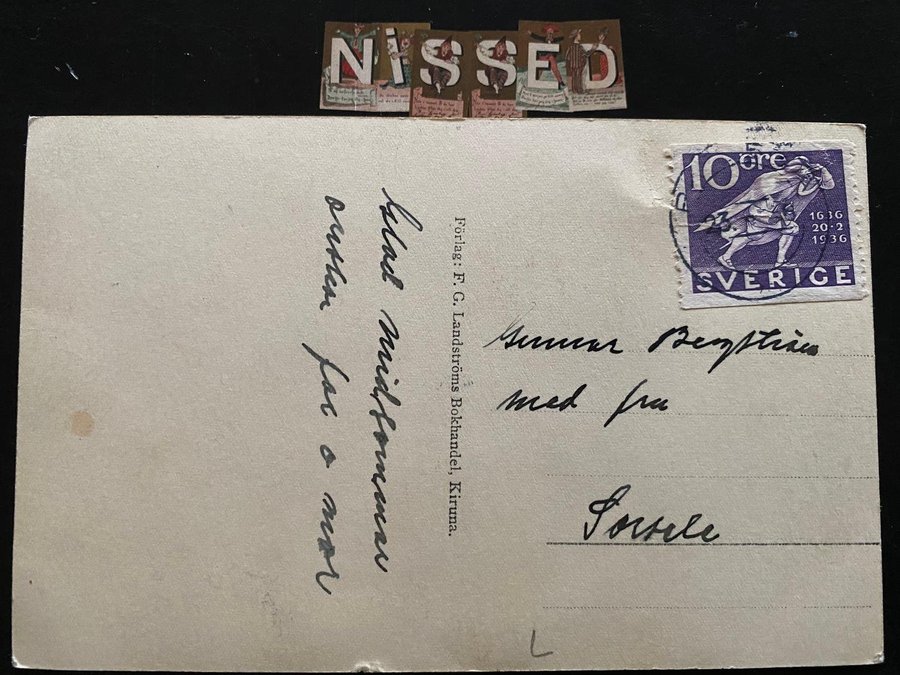 NiSSED
Glad midsommar
önskar far o mor
Förlag: F. G. Landströms Bokhandel, Kiruna.
10 öre
1636
20-2
1936
SVERIGE
23
Gunnar Bergström
med fru
Sorsele
L